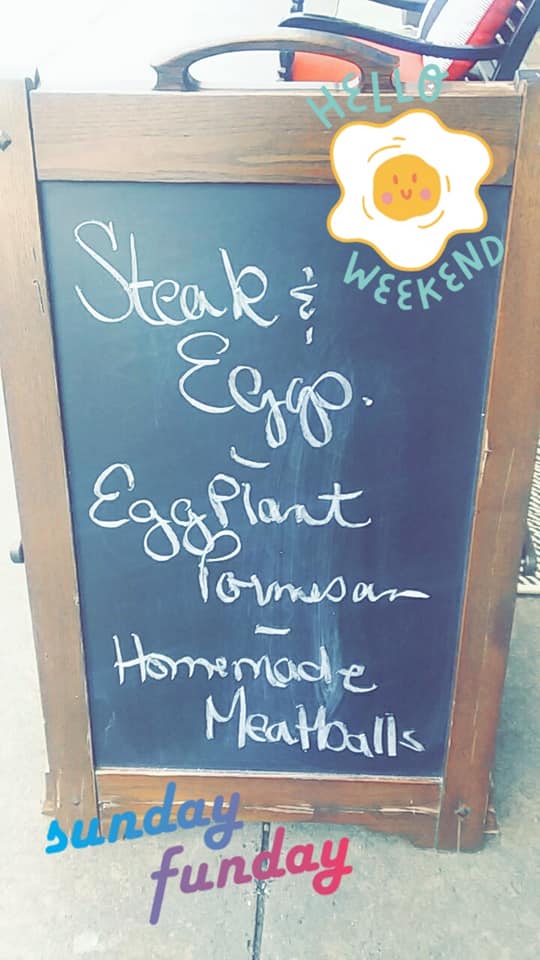 HELLO
WEEKEND
Steak &
Eggs.
EggPlant
Parmesan
Homemade
Meatballs
sunday
funday